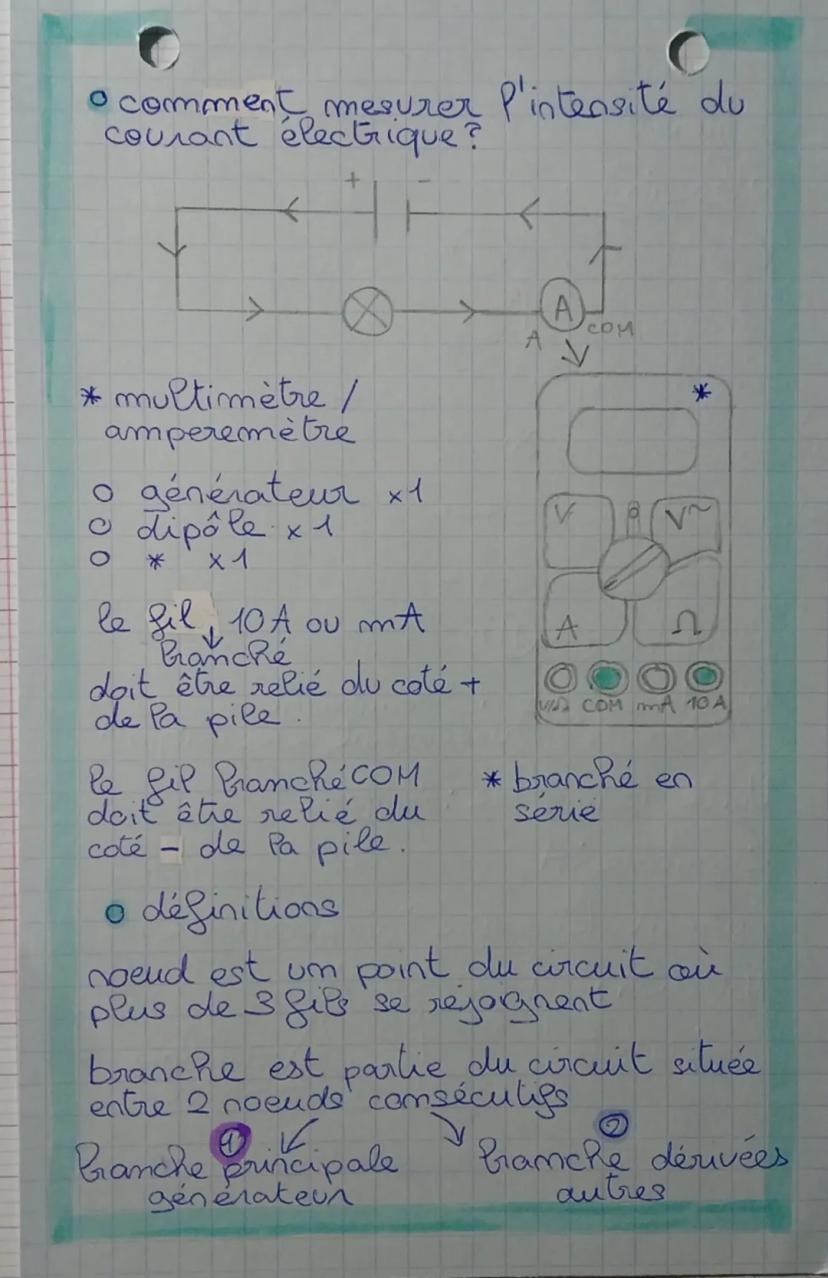 comment mesurer l'intensité du
courant électrique?
+ -
A
A COM
* multimètre /
amperemètre
*
générateur x1
dipôle x1
* x1
V V~
A Ω
V/Ω COM mA 10A
le fil 10A ou mA
branché
doit être relié du coté +
de la pile.
le fil branché COM
doit être relié du
coté - de la pile.
* branché en
série
définitions
noeud est um point du circuit où
plus de 3 fils se rejoignent
branche est partie du circuit située
entre 2 noeuds consécutifs
1
branche principale
générateur
2
branche dérivées
autres